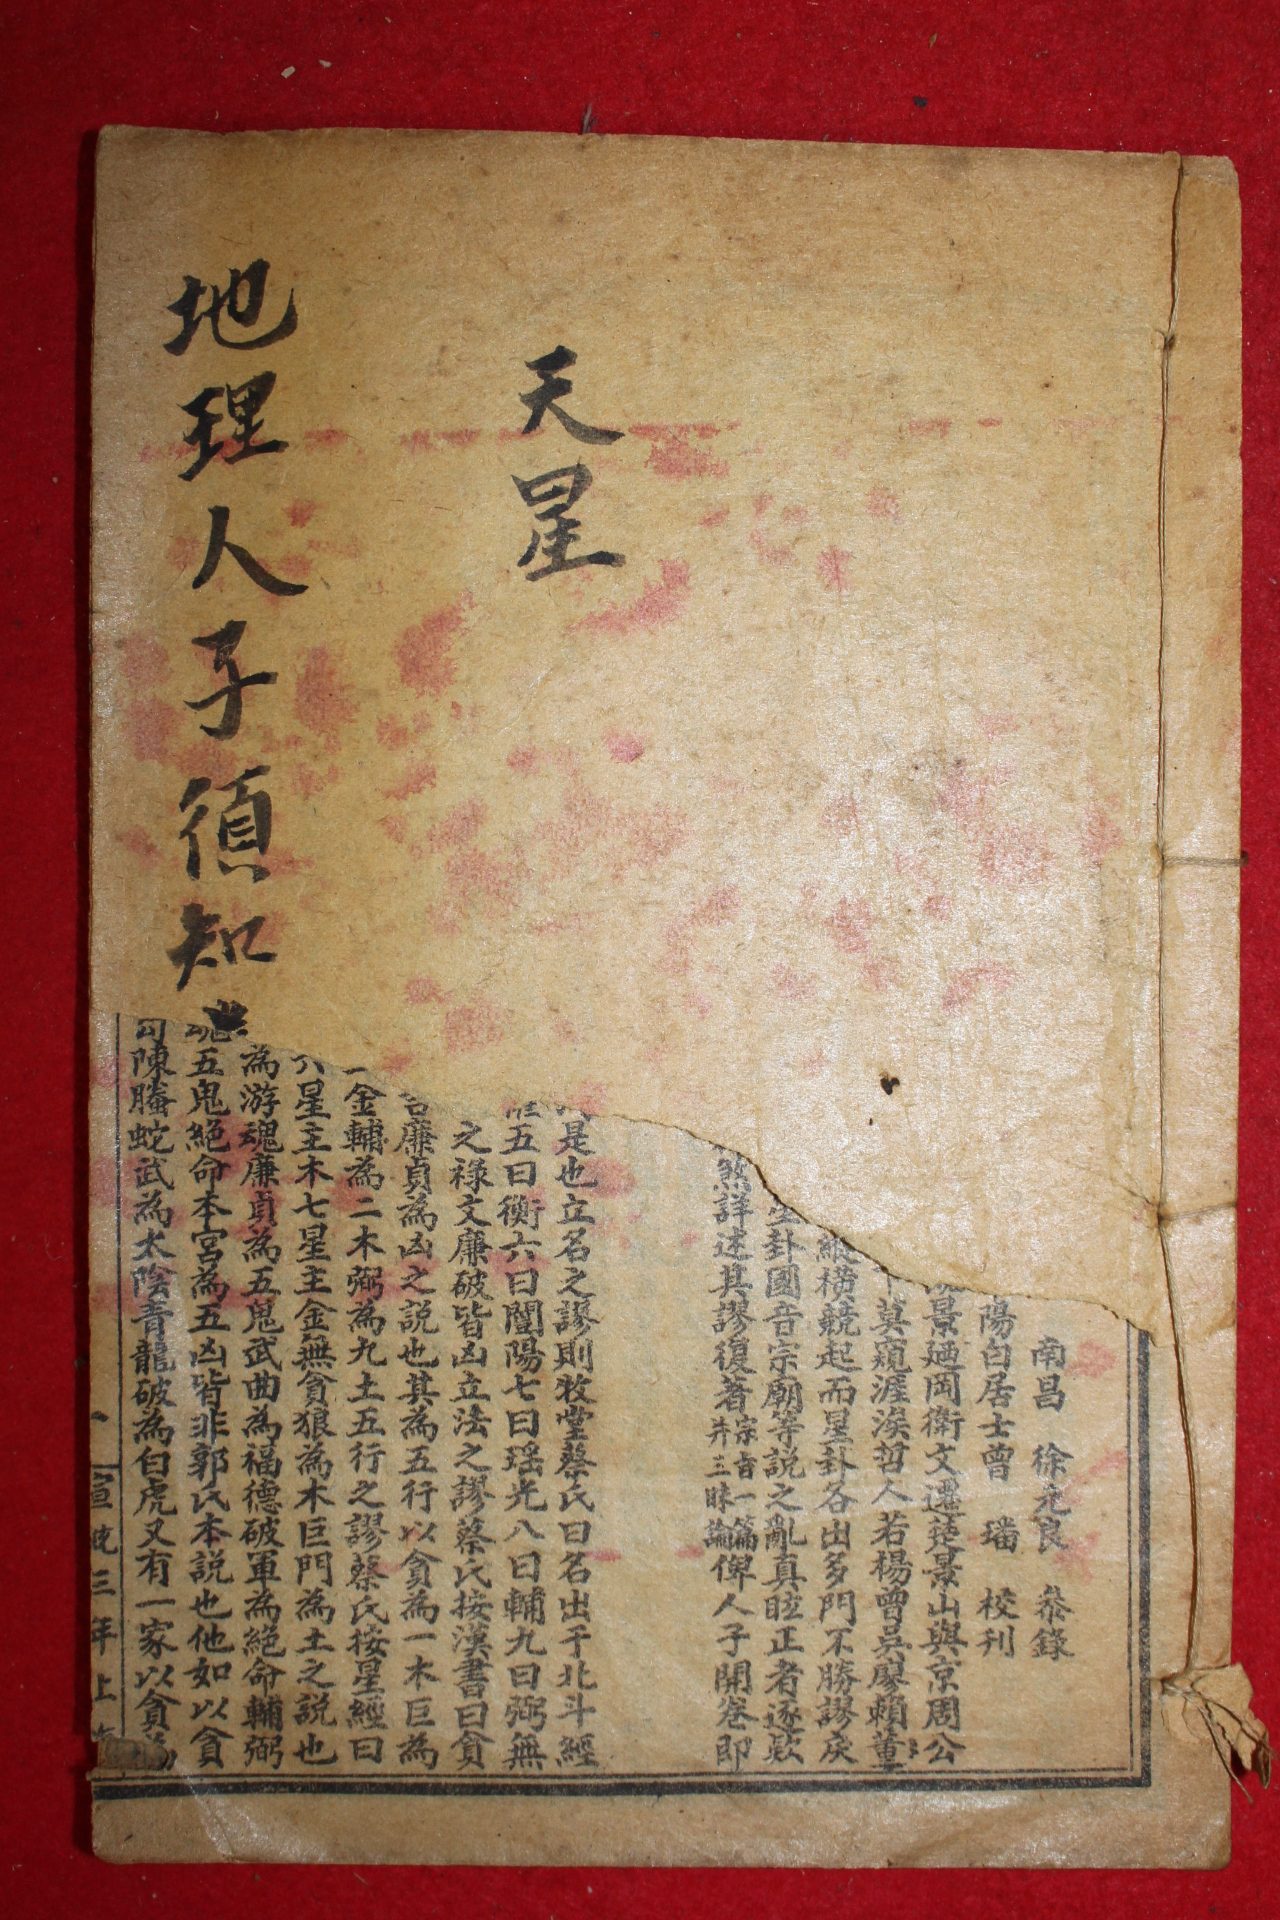 天星
地理人子須知
南昌 徐允良 叅錄
陽白居士曾 璠 校刊
景廼岡衛文遷楚景山與京周公
莫窺涯涘哲人若楊曾吳廖賴董
縱橫競起而星卦各出多門不勝謬戾
卦國音宗廟等說之亂真眩正者逐欵
煞詳述其謬復著宗旨一篇并三昧論俾人子開卷即
是也立名之謬則牧堂蔡氏曰名出于北斗經
五曰衡六曰闓陽七曰瑶光八曰輔九曰弼無
之祿文廉破皆凶立法之謬蔡氏按漢書曰貪
廉貞為凶之說也其為五行以貪為一木巨為
金輔為二木弼為九土五行之謬蔡氏按星經曰
六星主木七星主金無貪狼為木巨門為土之說也
為游魂廉貞為五鬼武曲為福德破軍為絕命輔弼
五鬼絕命本宮為五凶皆非郭氏本說也他如以貪
陳螣蛇武為太陰青龍破為白虎又有一家以貪為
宣統三年上